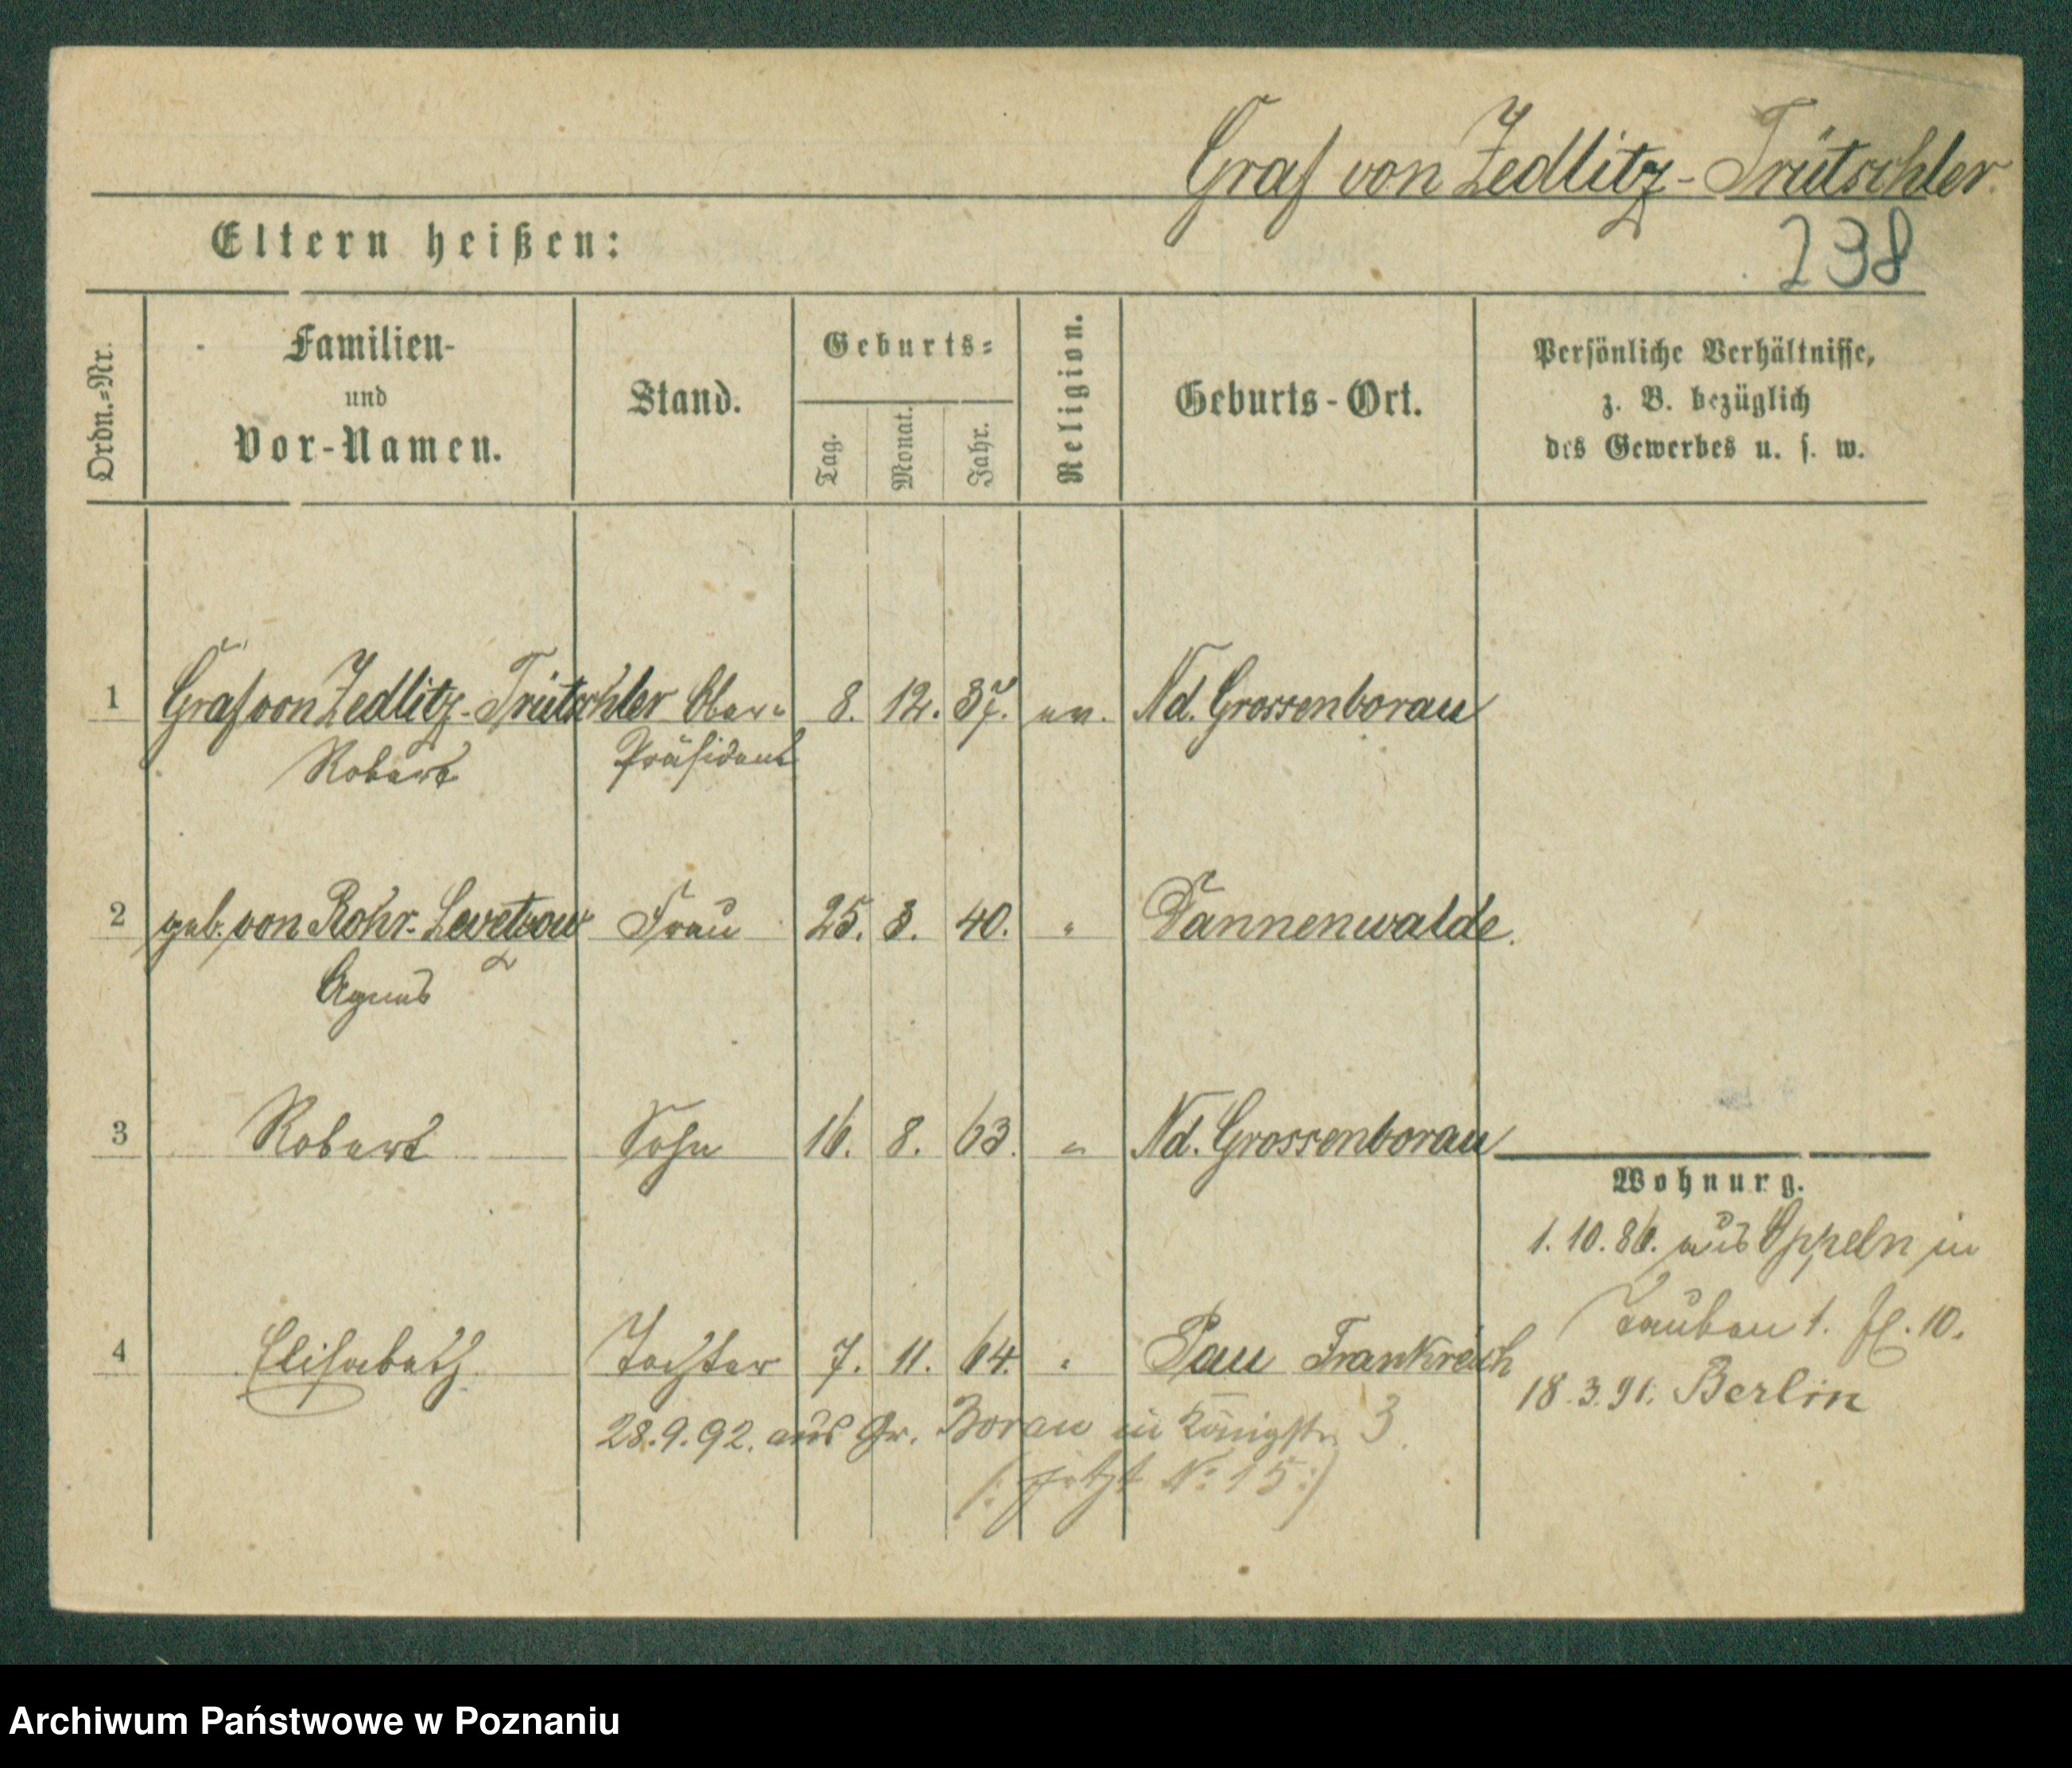 Graf von Zedlitz-Trütschler.
238
Eltern heißen:
Ordn.=Nr.
Familien-
und
Vor-Namen.
Stand.
Geburts=
Tag.
Monat.
Jahr.
Religion.
Geburts-Ort.
Persönliche Verhältnisse,
z. B. bezüglich
des Gewerbes u. s. w.
1 Graf von Zedlitz-Trütschler Ober= 8. 12. 37. ev. Nd. Grossenborau
Robert Präsident
2 geb. von Rohr-Levetzow Frau 25. 3. 40. " Tannenwalde.
Agnes
3 Robert Sohn 16. 8. 63. " Nd. Grossenborau
Wohnung.
1. 10. 86. aus Oppeln in
Tauben 1. fl. 10.
4 Elisabeth Tochter 7. 11. 64. " Pau Frankreich
18. 3. 91. Berlin
28. 9. 92. aus Gr. Borau in Königstr. 3.
(: jetzt No 15 :)
Archiwum Państwowe w Poznaniu